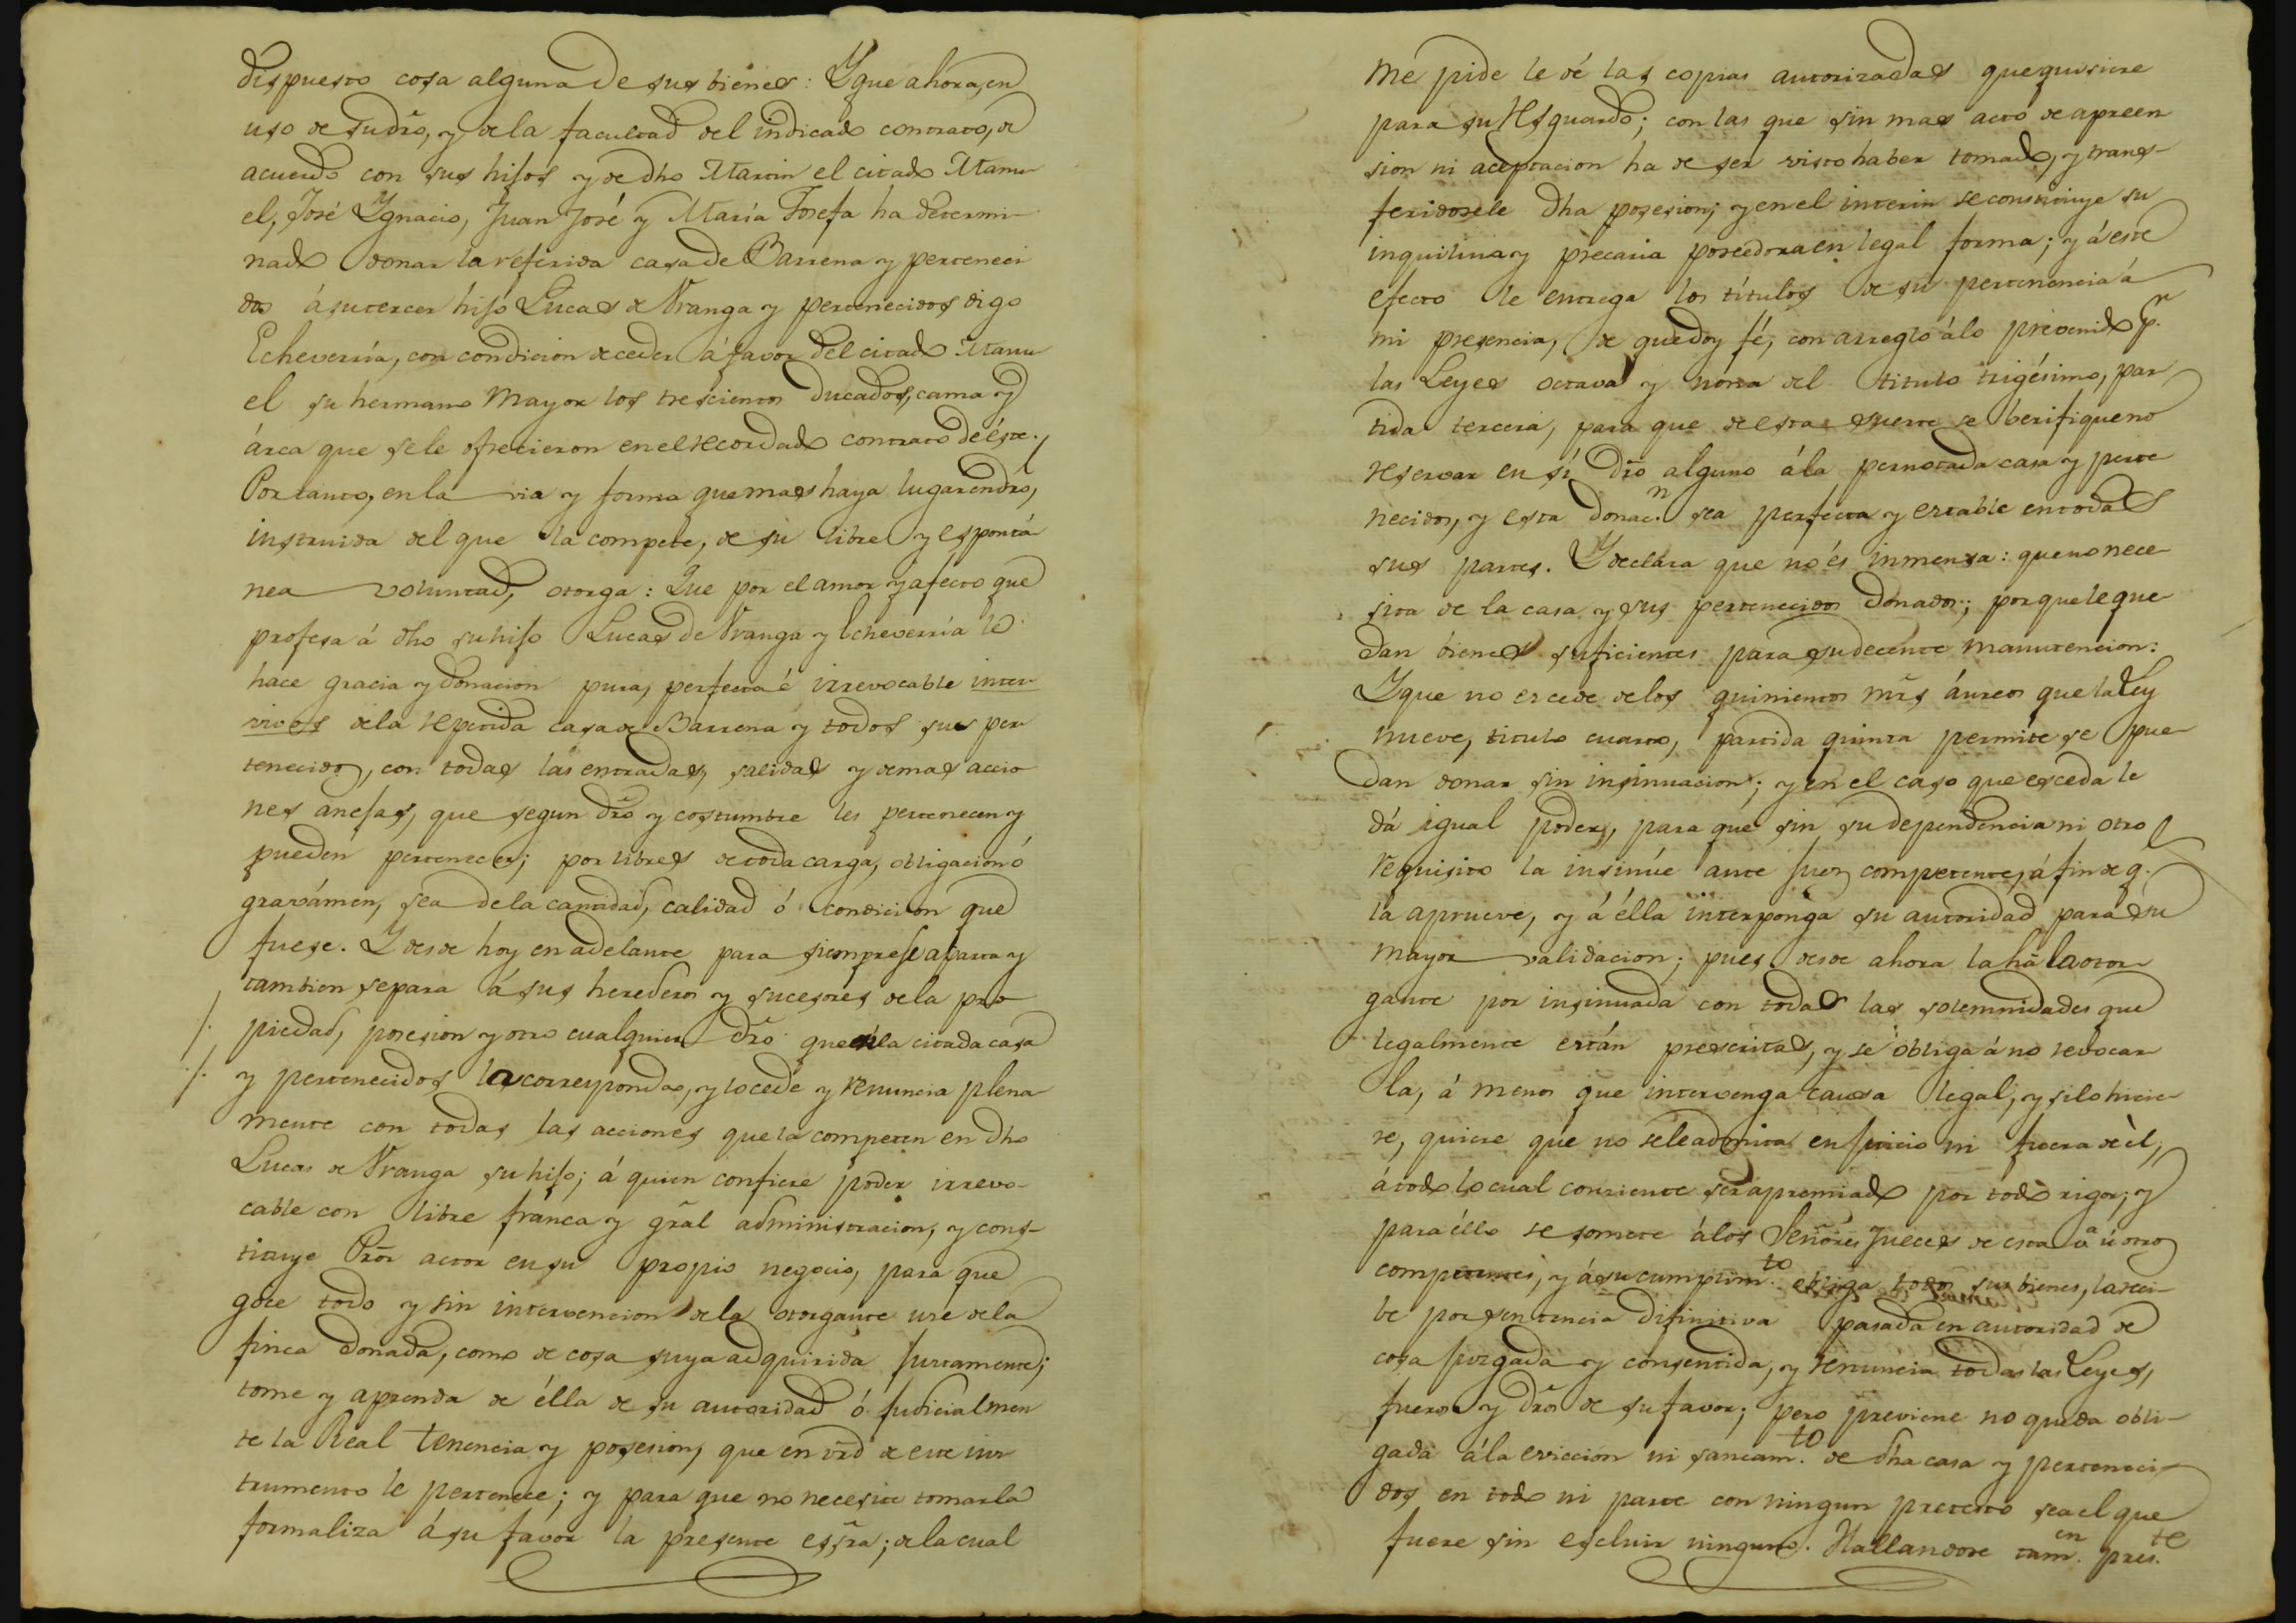 dispuesto cosa alguna de sus bienes: Y que ahora, en
uso de su dro, y de la facultad del indicado contrato, de
acuerdo con sus hijos y de dho Martin el citado Manu
el, José Ygnacio, Juan José y María Josefa ha determi-
nado donar la referida casa de Barrena y perteneci
dos á su tercer hijo Lucas de Uranga y pertenecidos digo
Echeverría, con condicion de ceder á favor del citado Manu
el su hermano mayor los trescientos ducados, cama y
árca que se le ofrecieron en el recordado contrato de éste.
Por tanto, en la via y forma que mas haya lugar en dro,
instruida del que la compete, de su libre y espontá
nea voluntad, otorga: Que por el amor y afecto que
profesa á dho su hijo Lucas de Uranga y Echeverría le
hace gracia y donacion pura, perfecta é irrevocable inter
vivos de la repetida casa de Barrena y todos sus per
tenecidos, con todas las entradas, salidas y demas accio
nes anejas, que segun dro y costumbre les pertenecen y
pueden pertenecer; por libres de toda carga, obligacion ó
gravámen, sea de la cantidad, calidad ó condicion que
fuese. Y desde hoy en adelante para siempre se aparta y
tambien separa á sus herederos y sucesores de la pro
piedad, posesion y otro cualquier dro que á la citada casa
y pertenecidos la corresponda, y lo cede y renuncia plena
mente con todas las acciones que la competen en dho
Lucas de Uranga su hijo; á quien confiere poder irrevo-
cable con libre franca y gral administracion, y cons-
tituye Pror actor en su propio negocio, para que
goce todo y sin intervencion de la otorgante use de la
finca donada, como de cosa suya adquirida justamente;
tome y aprenda de élla de su autoridad ó judicialmen
te la Real tenencia y posesion, que en vrd de este ins
trumento le pertenece; y para que no necesite tomarla
formaliza á su favor la presente essra; de la cual
me pide le dé las copias autorizadas que quisiere
para su resguardo; con las que sin mas acto de apreen
sion ni aceptacion ha de ser visto haber tomado, y trans-
feridosele dha posesion; y en el interin se constituye su
inquilina y precaria poseedora en legal forma; y á este
efecto le entrega los títulos de su pertenencia á
mi presencia, de que doy fé, con arreglo á lo prevenido pr.
las Leyes octava y nona del titulo trigésimo, par
tida tercera, para que de esta suerte se berifique no
reservar en sí dro alguno á la pernotada casa y perte
necidos, y esta donac.n sea perfecta y estable en todas
sus partes. Y declara que no és inmensa: que no nece
sita de la casa y sus pertenecidos donados; porque le que
dan bienes suficientes para su decente manutencion:
Y que no excede de los quinientos mrs áureos que la Ley
nueve, titulo cuarto, partida quinta permite se pue
dan donar sin insinuacion; y en el caso que esceda le
dá igual poder, para que sin su dependencia ni otro
requisito la insinúe ante Juez competente, á fin de q.
la aprueve, y á élla interponga su autoridad para su
mayor validacion; pues desde ahora la há la otor
gante por insinuada con todas las solemnidades que
legalmente están prescritas, y se obliga á no revocar
la, á menos que intervenga causa legal, y si lo hicie
re, quiere que no se le admita en juicio ni fuera de èl;
á todo lo cual consiente ser apremiado por todo rigor; y
para éllo se somete á los Señores Jueces de esta va ú otros
competentes, y á su cumplim.to obliga todos sus bienes, la reci-
be por sentencia difinitiva pasada en autoridad de
cosa juzgada y consentida, y renuncia todas las Leyes,
fueros y dros de su favor; pero previene no queda obli-
gada á la eviccion ni saneam.to de dha casa y perteneci-
dos en todo ni parte con ningun pretesto sea el que
fuere sin escluir ninguno. Hallandose tam.en pres.te